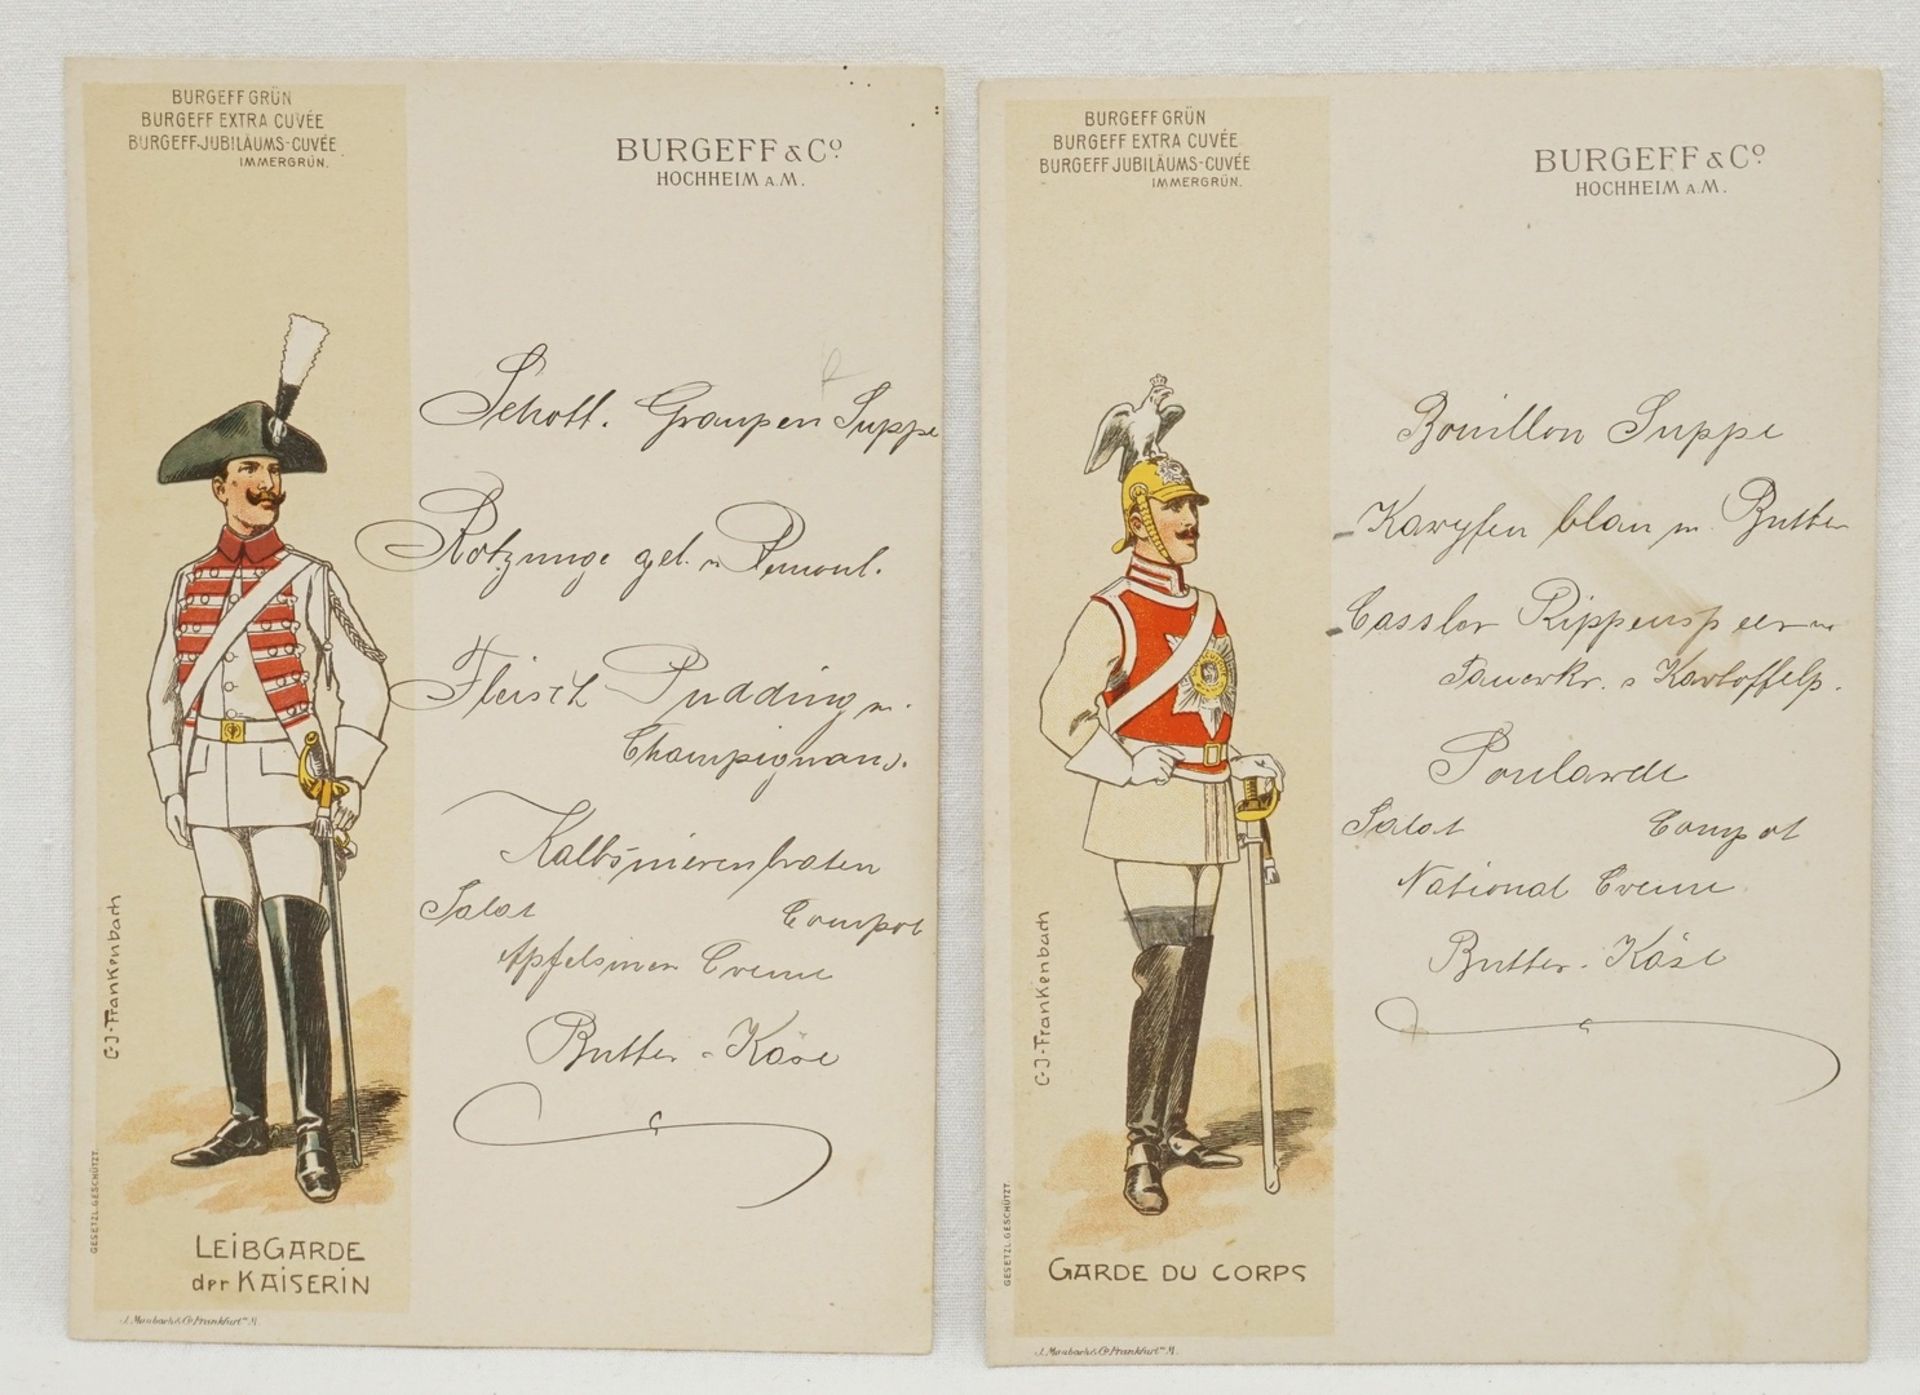 BURGEFF GRÜN
BURGEFF EXTRA CUVÉE
BURGEFF-JUBILÄUMS-CUVÉE
IMMERGRÜN.
BURGEFF & Co.
HOCHHEIM A.M.
Schott. Graupen Suppe
Rotzunge geb. Remoul.
Fleisch Pudding m.
Champignons.
Kalbsnierenbraten
Salat Compot
Apfelsinen Creme
Butter - Käse
C-J-Frankenbach
GESETZL. GESCHÜTZT.
LEIBGARDE
der KAISERIN
J. Maubach & Co Frankfurt a/M.
BURGEFF GRÜN
BURGEFF EXTRA CUVÉE
BURGEFF JUBILÄUMS-CUVÉE
IMMERGRÜN.
BURGEFF & Co.
HOCHHEIM A.M.
Bouillon Suppe
Karpfen blau m. Butter
Cassler Rippenspeer m
Sauerkr. Kartoffelp.
Poularde
Salat Compot
National Creme
Butter - Käse
C-J-Frankenbach
GESETZL. GESCHÜTZT.
GARDE DU CORPS
J. Maubach & Co Frankfurt a/M.